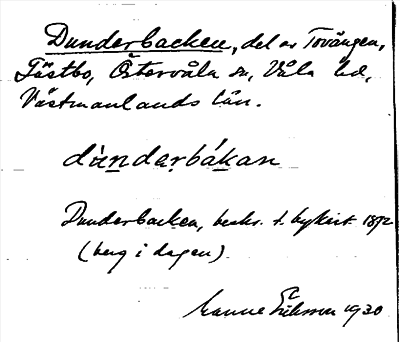 Dunderbacken, del av Tovången,
Tästbo, Östervåla sn, Våla hd,
Västmanlands län.
dùndarbákan
Dunderbacken, beskr. t. hykart 1892
(berg i dagen).
1930